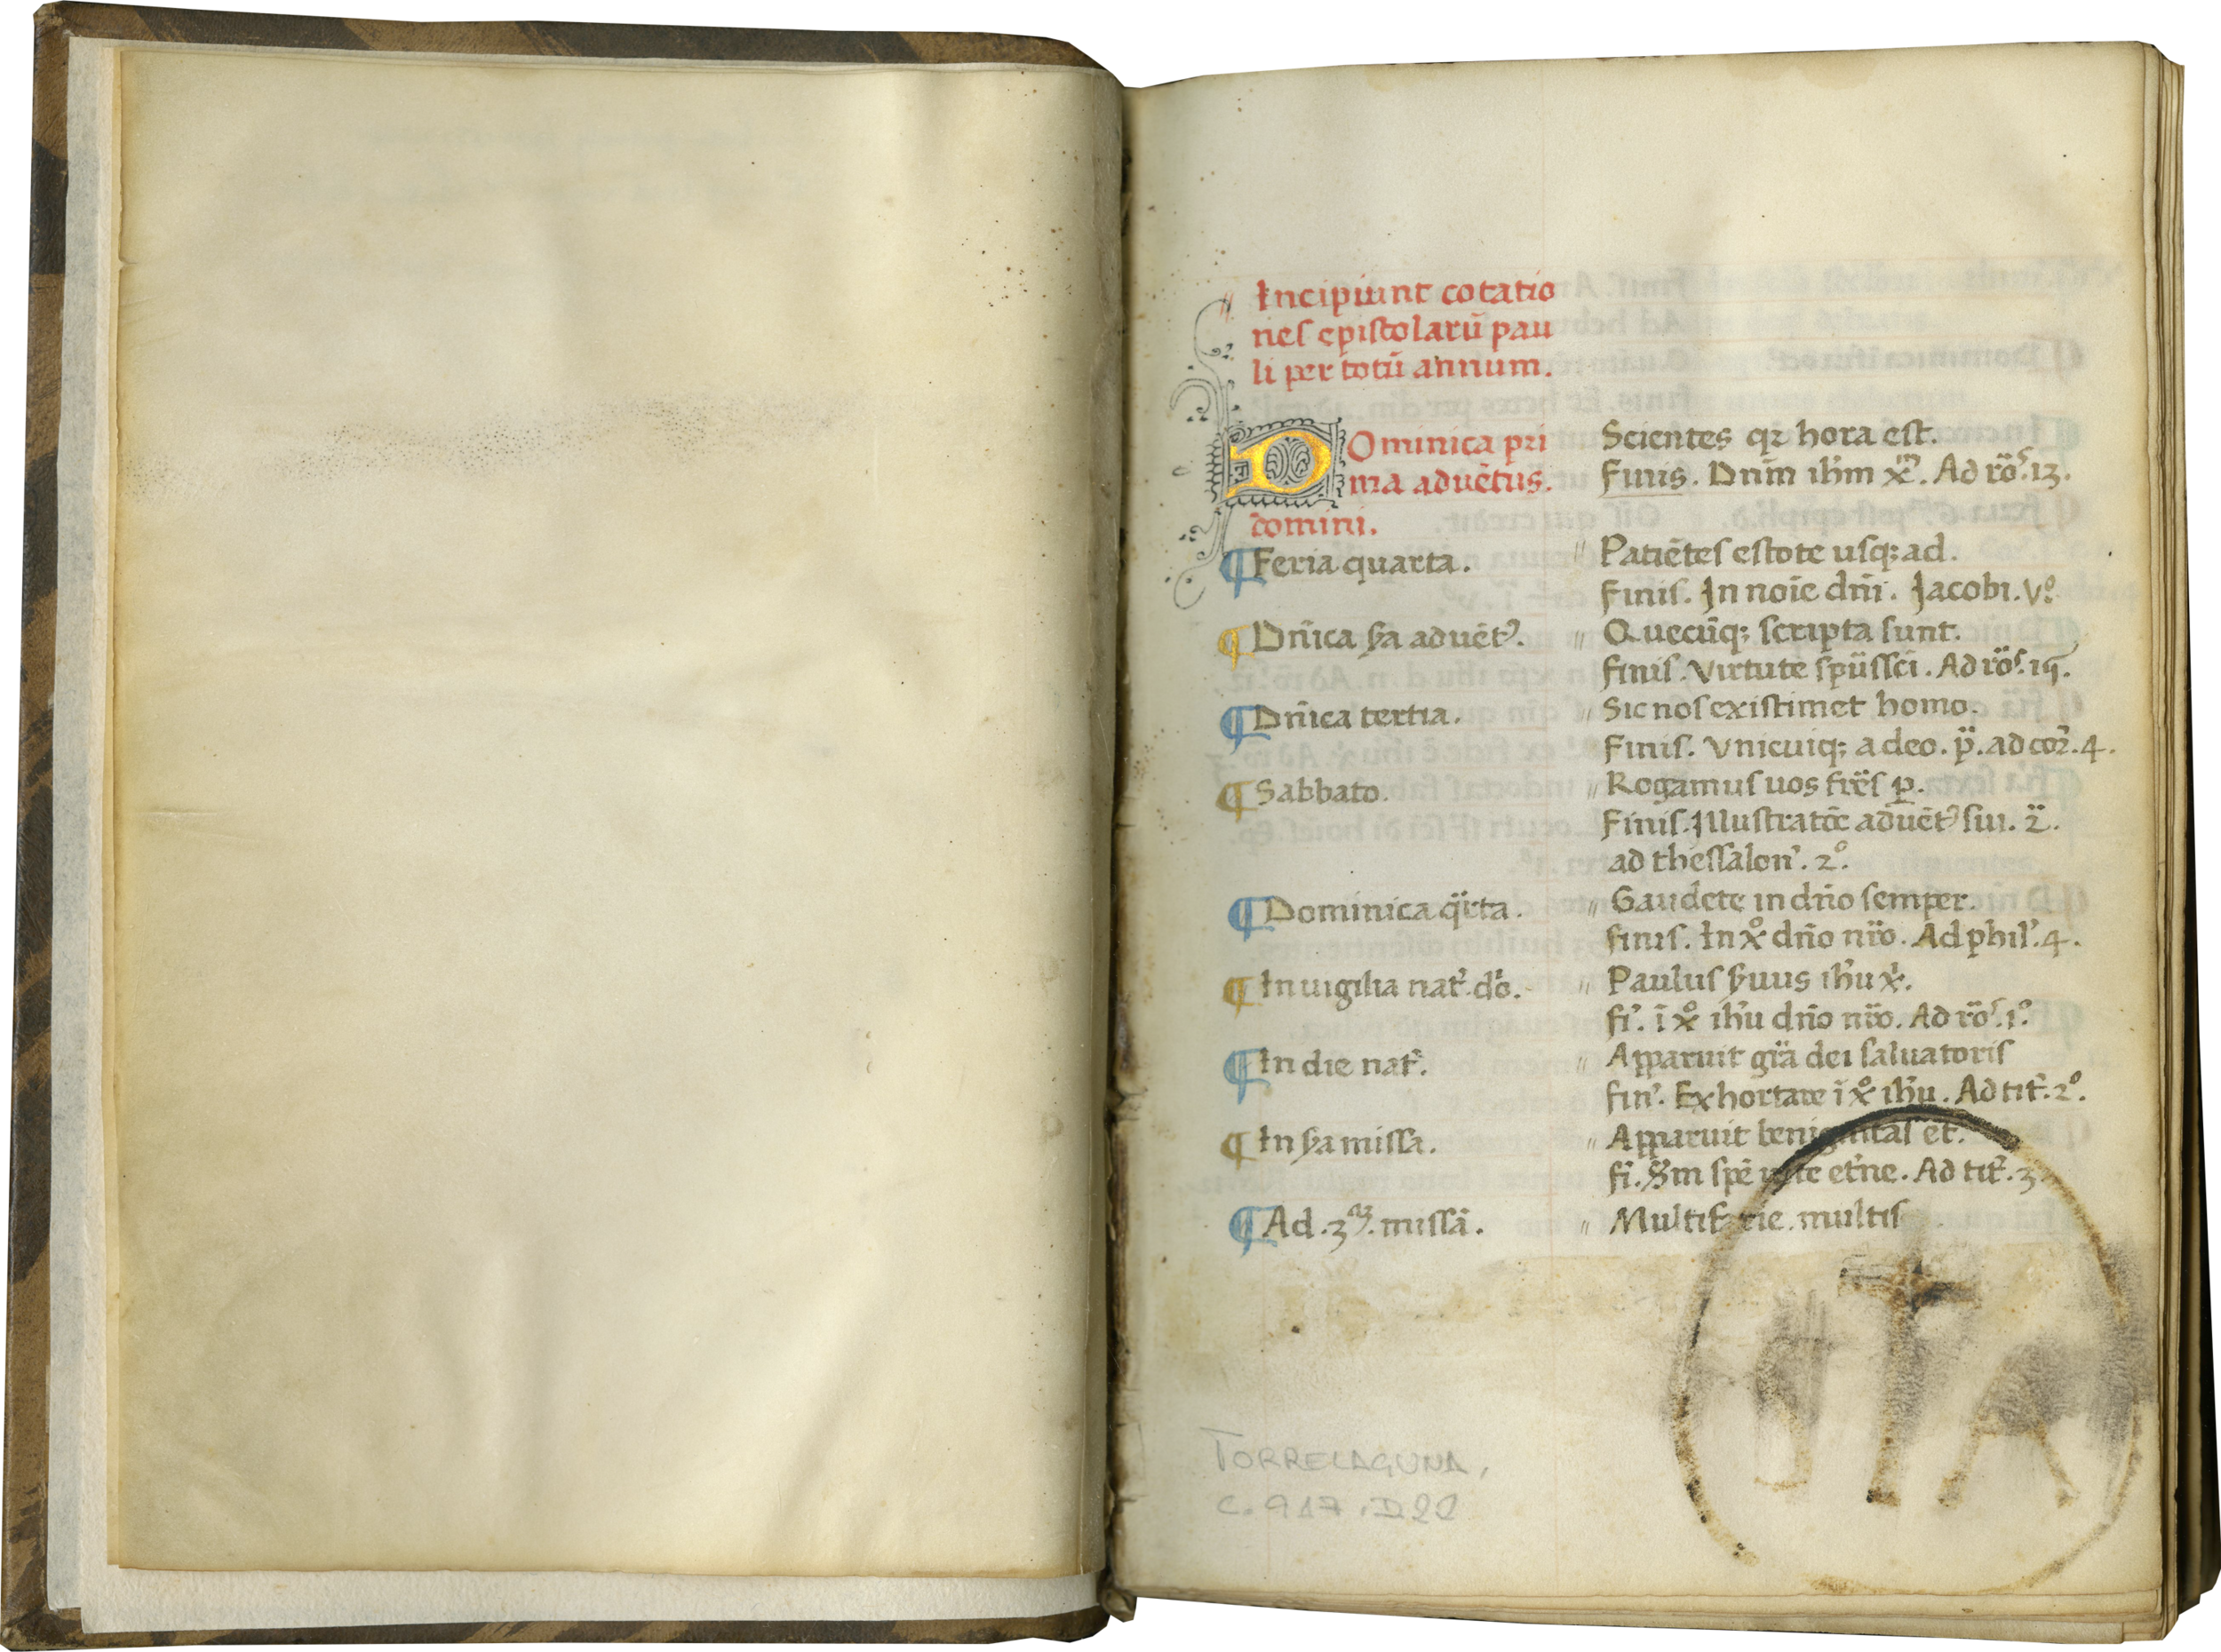 Incipiunt cotatio
nes epistolarū pau
li per totū annum.
Dominica pri
ma aduētus.
domini.
Scientes qꝛ hora est.
Finis. Dnm̄ ihm̄ xm̄. Ad ro̅s. 13.
¶ Feria quarta.
〃 Patiētes estote usq; ad.
Finis. In noīe dn̄i. Jacobi. Vº.
¶ Dn̄ica ẜa aduētꝰ.
〃 Quecūq; scripta sunt.
finis. Virtute spūssci. Ad ro̅s. 15.
¶ Dn̄ica tertia.
〃 Sic nos existimet homo.
Finis. Vnicuiq; a deo. p̈. ad coꝛ̄. 4.
¶ Sabbato.
〃 Rogamus uos fr̄es p.
Finis. Illustratōe aduētꝰ sui. 2̈.
ad thessalon̄. 2º.
¶ Dominica q̈rta.
〃 Gaudete in dn̄o semper.
finis. In xº dn̄o nr̄o. Ad phil'. 4.
¶ In uigilia nat̄. do̅.
〃 Paulus ẜuus ihu xi.
fi'. ī xº ihu dn̄o nr̄o. Ad ro̅s. 1º.
¶ In die nat̄.
〃 Apparuit gr̄a dei saluatoris
fin'. Exhortare ī xº ihu. Ad tit̄. 2º.
¶ In ẜa missa.
〃 Apparuit benignitas et.
fi'. S̄m spē uite et̄ne. Ad tit̄. 3
¶ Ad. 3ᵃᵐ. missā.
〃 Multifarie. multis
TORRELAGUNA,